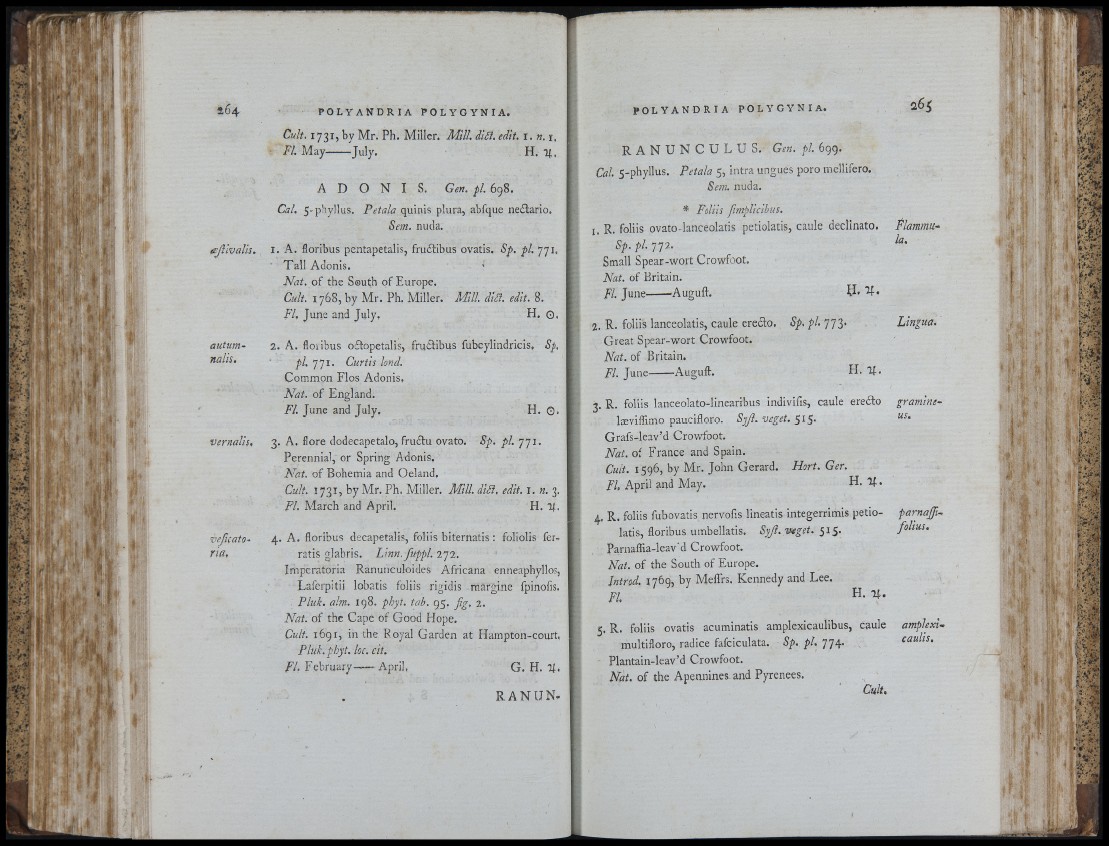 264 POLYANDRIA POLYGYNIA.
Cult. 1731, by Mr. Ph. Miller. Mill. dict. edit. 1. n. 1.
Fl. May——July. H. ♃.
ADONIS. Gen. pl. 698.
Cal. 5-phyllus. Petala quinis plura, abſque nectario.
Sem. nuda.
æſtivalis. 1. A. floribus pentapetalis, fructibus ovatis. Sp. pl. 771.
Tall Adonis.
Nat. of the South of Europe.
Cult. 1768, by Mr. Ph. Miller. Mill. dict. edit. 8.
Fl. June and July. H. ⊙.
autum- 2. A. floribus octopetalis, fructibus ſubcylindricis. Sp.
nalis. pl. 771. Curtis lond.
Common Flos Adonis.
Nat. of England.
Fl. June and July. H. ⊙.
vernalis. 3. A. flore dodecapetalo, fructu ovato. Sp. pl. 771.
Perennial, or Spring Adonis.
Nat. of Bohemia and Oeland.
Cult. 1731, by Mr. Ph. Miller. Mill. dict. edit. 1. n. 3.
Fl. March and April. H. ♃.
veſicato- 4. A. floribus decapetalis, foliis biternatis: foliolis ſer-
ria. ratis glabris. Linn. ſuppl. 272.
Imperatoria Ranunculoides Africana enneaphyllos,
Laſerpitii lobatis foliis rigidis margine ſpinoſis.
Pluk. alm. 198. phyt. tab. 95. fig. 2.
Nat. of the Cape of Good Hope.
Cult. 1691, in the Royal Garden at Hampton-court.
Pluk. phyt. loc. cit.
Fl. February—— April. G. H. ♃.
RANUN-
POLYANDRIA POLYGYNIA. 265
RANUNCULUS. Gen. pl. 699.
Cal. 5-phyllus. Petala 5, intra ungues poro mellifero.
Sem. nuda.
* Foliis ſimplicibus.
1. R. foliis ovato-lanceolatis petiolatis, caule declinato. Flammu-
Sp. pl. 772. la.
Small Spear-wort Crowfoot.
Nat. of Britain.
Fl. June——Auguſt. H. ♃.
2. R. foliis lanceolatis, caule erecto. Sp. pl. 773. Lingua.
Great Spear-wort Crowfoot.
Nat. of Britain.
Fl. June——Auguſt. H. ♃.
3. R. foliis lanceolato-linearibus indiviſis, caule erecto gramine-
læviſſimo paucifloro. Syſt. veget. 515. us.
Graſs-leav'd Crowfoot.
Nat. of France and Spain.
Cult. 1596, by Mr. John Gerard. Hort. Ger.
Fl. April and May. H. ♃.
4. R. foliis ſubovatis nervoſis lineatis integerrimis petio- parnaſſi-
latis, floribus umbellatis. Syſt. veget. 515. folius.
Parnaſſia-leav'd Crowfoot.
Nat. of the South of Europe.
Introd. 1769, by Meſſrs. Kennedy and Lee.
Fl. H. ♃.
5. R. foliis ovatis acuminatis amplexicaulibus, caule amplexi-
multifloro, radice faſciculata. Sp. pl. 774. caulis.
Plantain-leav'd Crowfoot.
Nat. of the Apennines and Pyrenees.
Cult.